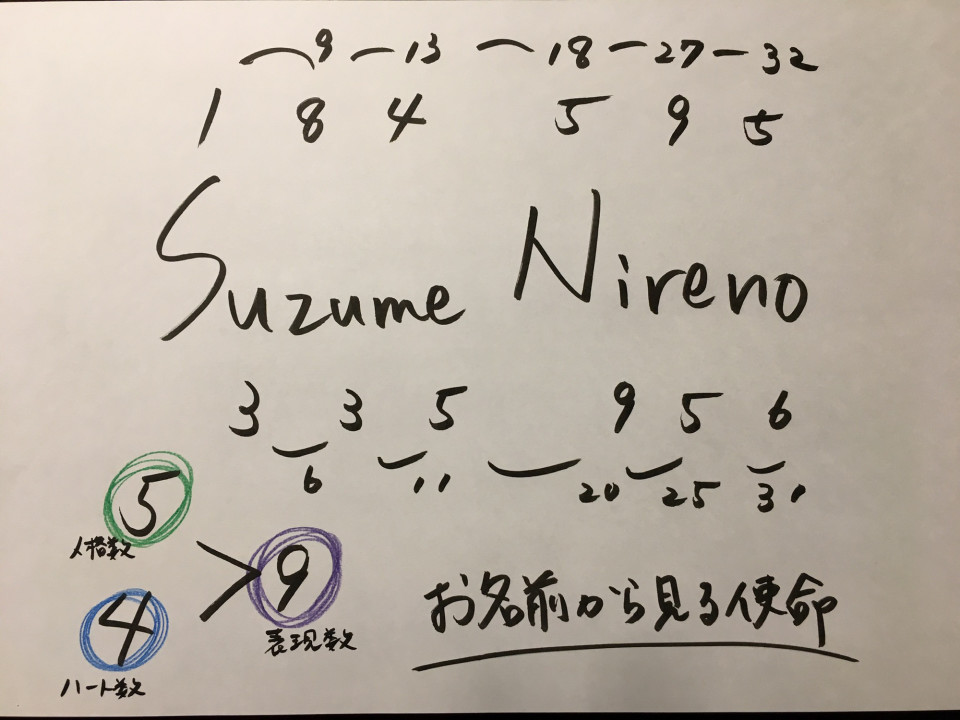 9 13 18 27 32
1 8 4 5 9 5
Suzume Nireno
3 3 5 9 5 6
6 11 20 25 31
5
人格数
> 9
表現数
4
ハート数
お名前から見る使命